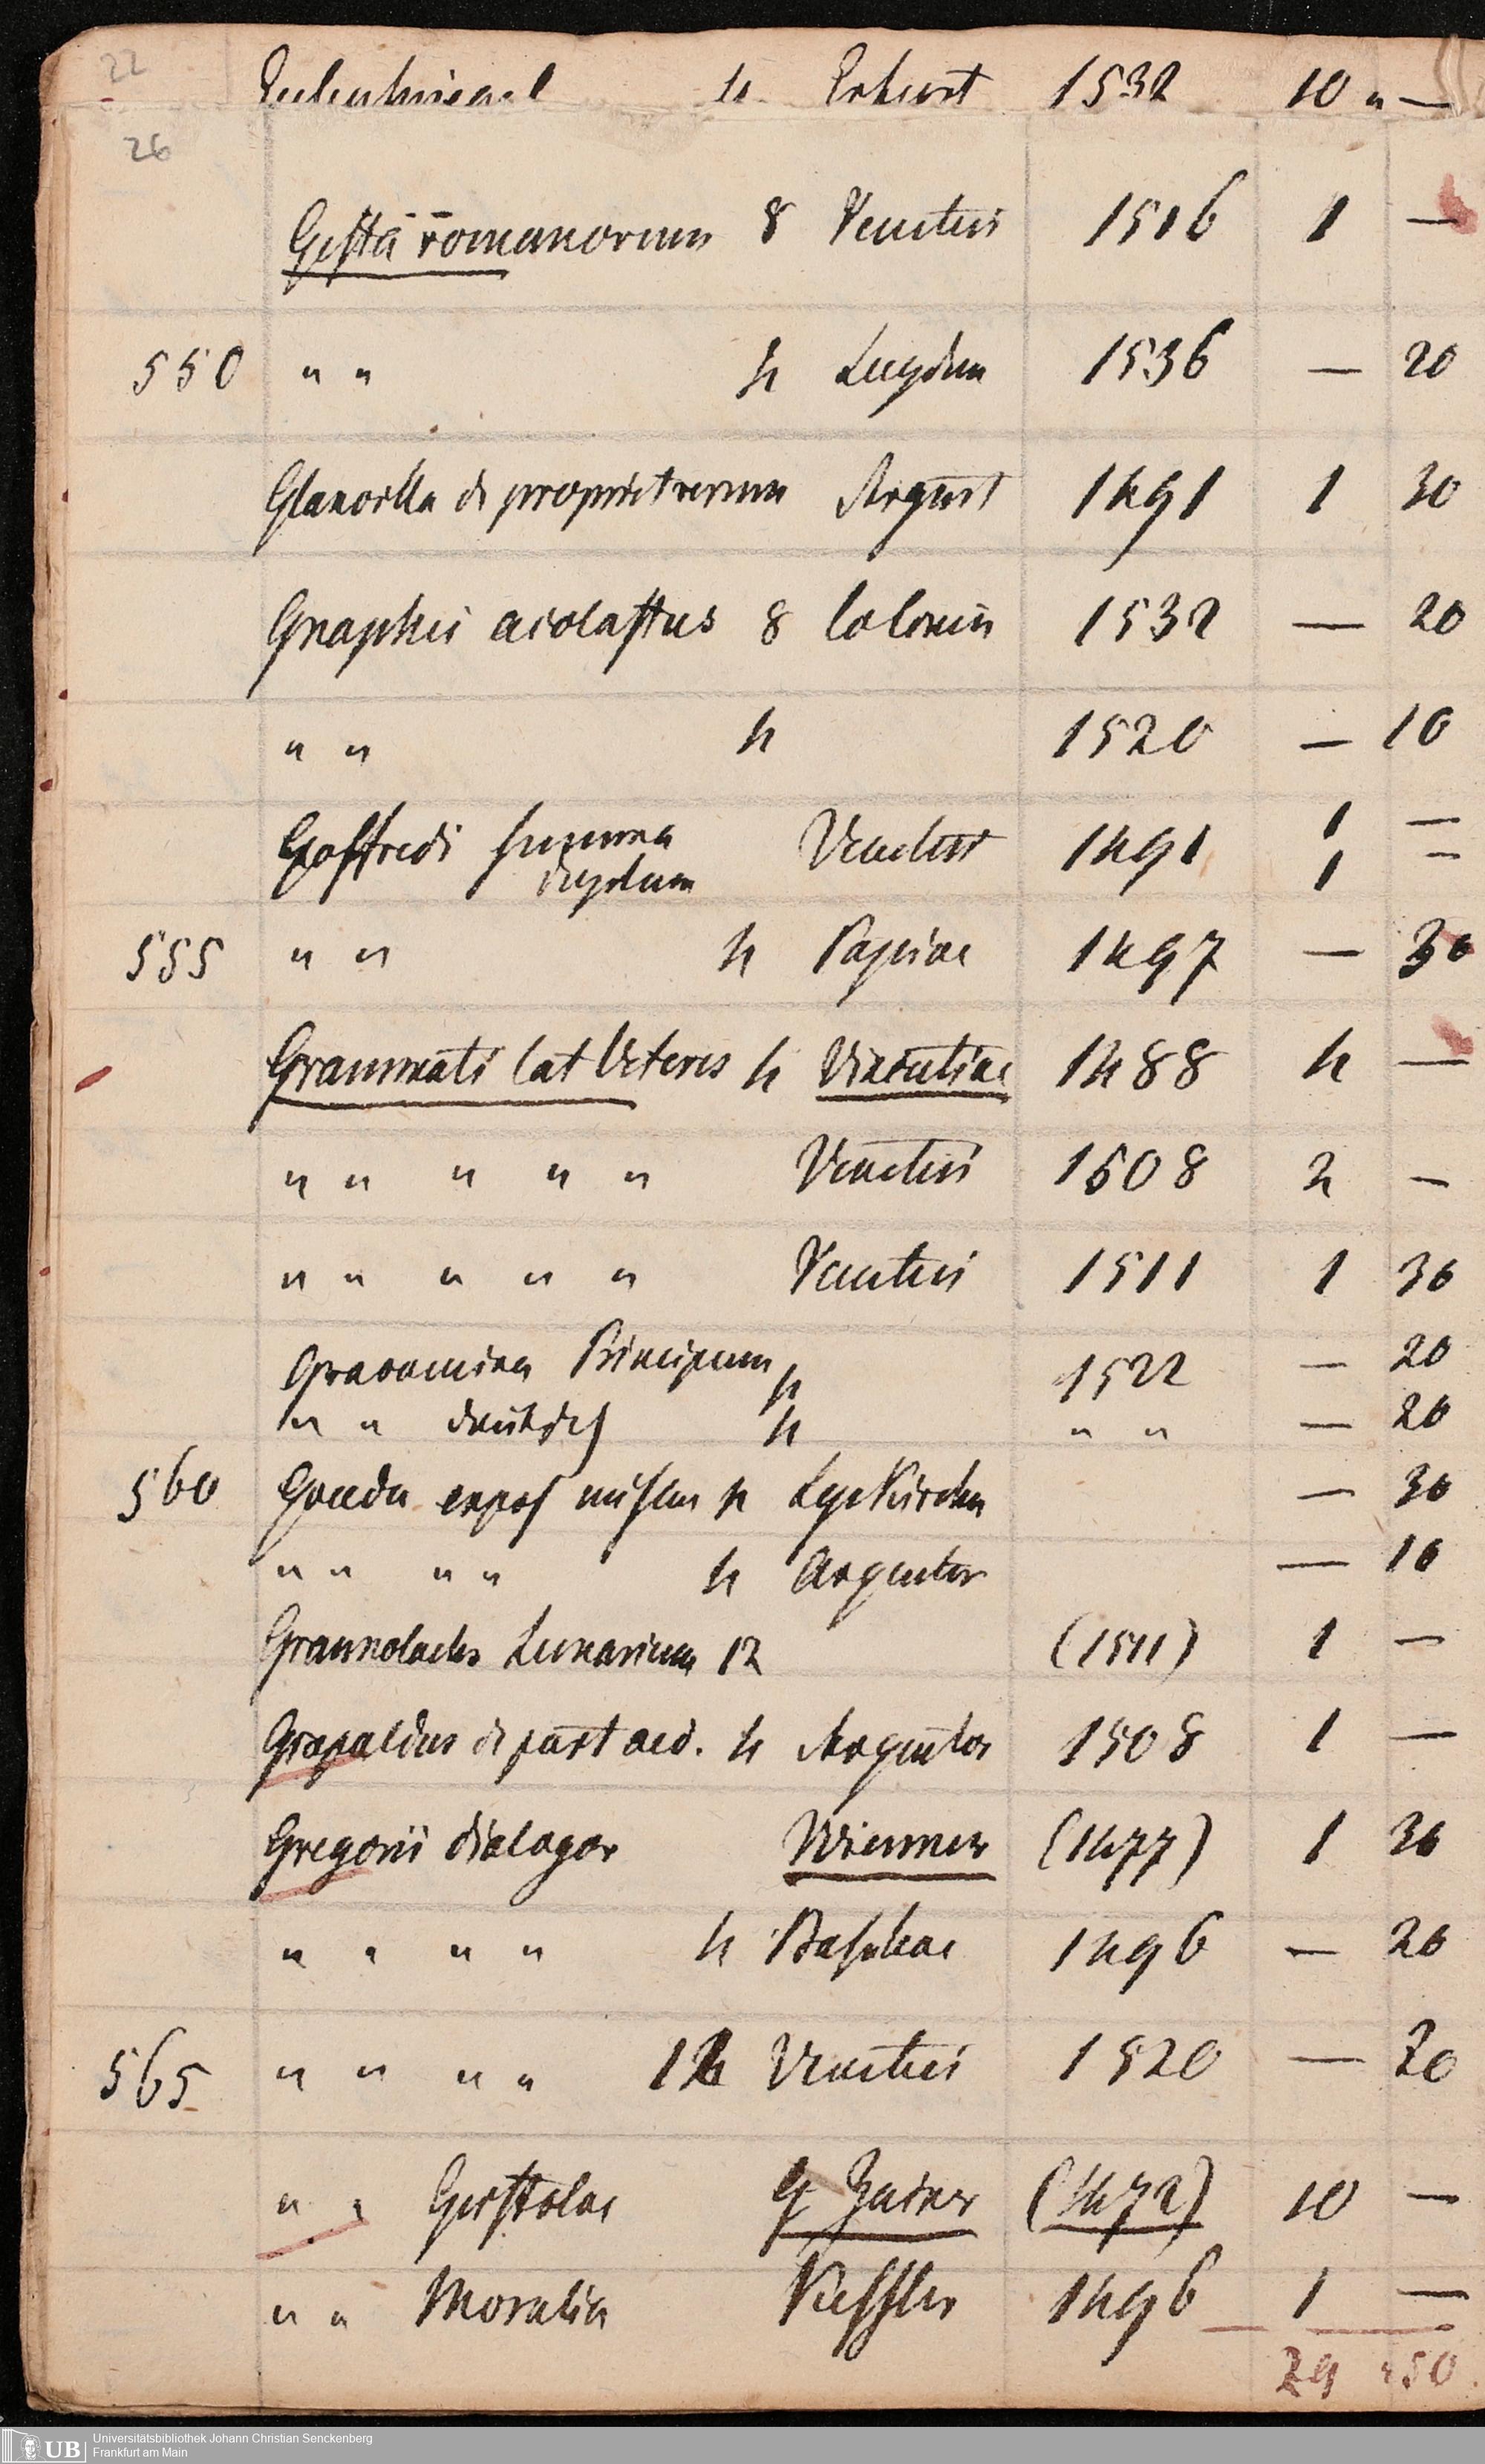 22
Eulenspiegel 4 Erfurt 1532 10 " —
26
Gesta romanorum 8 Venetiis 1516 1 —
550 " " 4 Lugdun 1536 — 20
Glanvilla de propriet rerum Argent 1491 1 30
Gnaphei acolastus 8 Coloniae 1532 — 20
" " 4 1520 — 10
Goffredi summa 1 —
Venetiis 1491 1 —
555 " " 4 Papiae 1497 — 30
Grammati lat Veteres 4 Vincentiae 1488 4 —
" " " " " Venetiis 1508 2 —
" " " " " Venetiis 1511 1 30
Gravamina Principum 4 1522 — 20
" " deutsch 4 " " — 20
560 expos missae 4 Lyskirchen — 30
" " " " 4 Argentor — 10
Grannolachs Lunarium 12 (1511) 1 —
Grapaldus de part aed. 4 Argentor 1508 1 —
Gregorii dialogor (1477) 1 30
" " " " 4 Basileae 1496 — 20
565 " " " " 12 Venetiis 1520 — 30
" " Epistolae G Zainer (1472) 10 —
" " Moralia Kessler 1496 1 —
29 " 50
UB Universitätsbibliothek Johann Christian Senckenberg
Frankfurt am Main